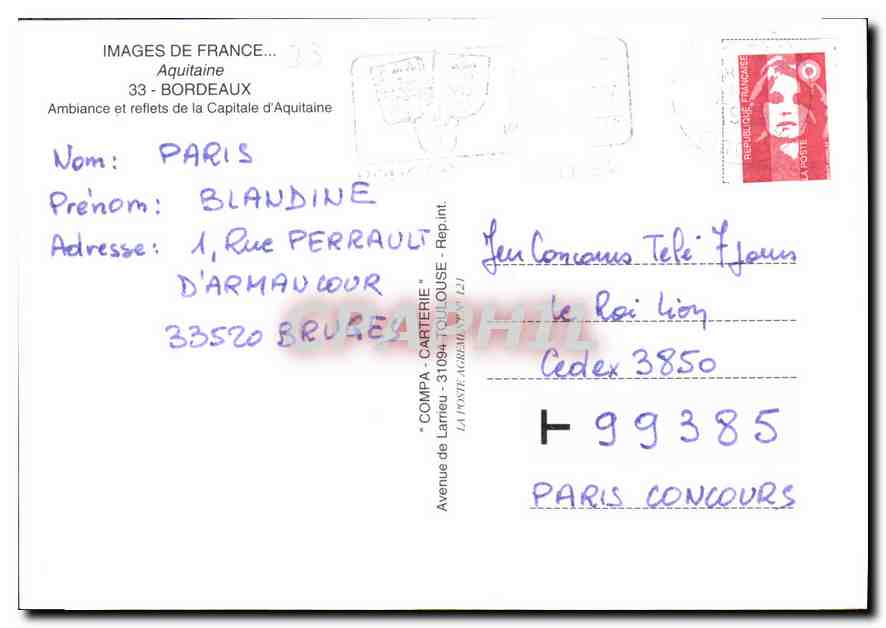 IMAGES DE FRANCE...
Aquitaine
33 - BORDEAUX
Ambiance et reflets de la Capitale d'Aquitaine
33
Nom: PARIS
Prénom: BLANDINE
Adresse: 1, Rue PERRAULT
D'ARMAUCOUR
33520 BRUGES
" COMPA - CARTERIE "
Avenue de Larrieu - 31094 TOULOUSE - Rep.int.
LA POSTE AGREMENT N° 121
REPUBLIQUE FRANÇAISE
LA POSTE
Jeu Concours Télé 7 Jours
Le Roi Lion
Cedex 3850
T 99385
PARIS CONCOURS
CPAPHIL